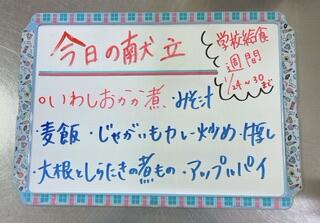 今日の献立
学校給食
週間
1/24~30まで
・いわしおかか煮・みそ汁
・麦飯・じゃがいもカレー炒め・
・大根としらたきの煮もの・アップルパイ